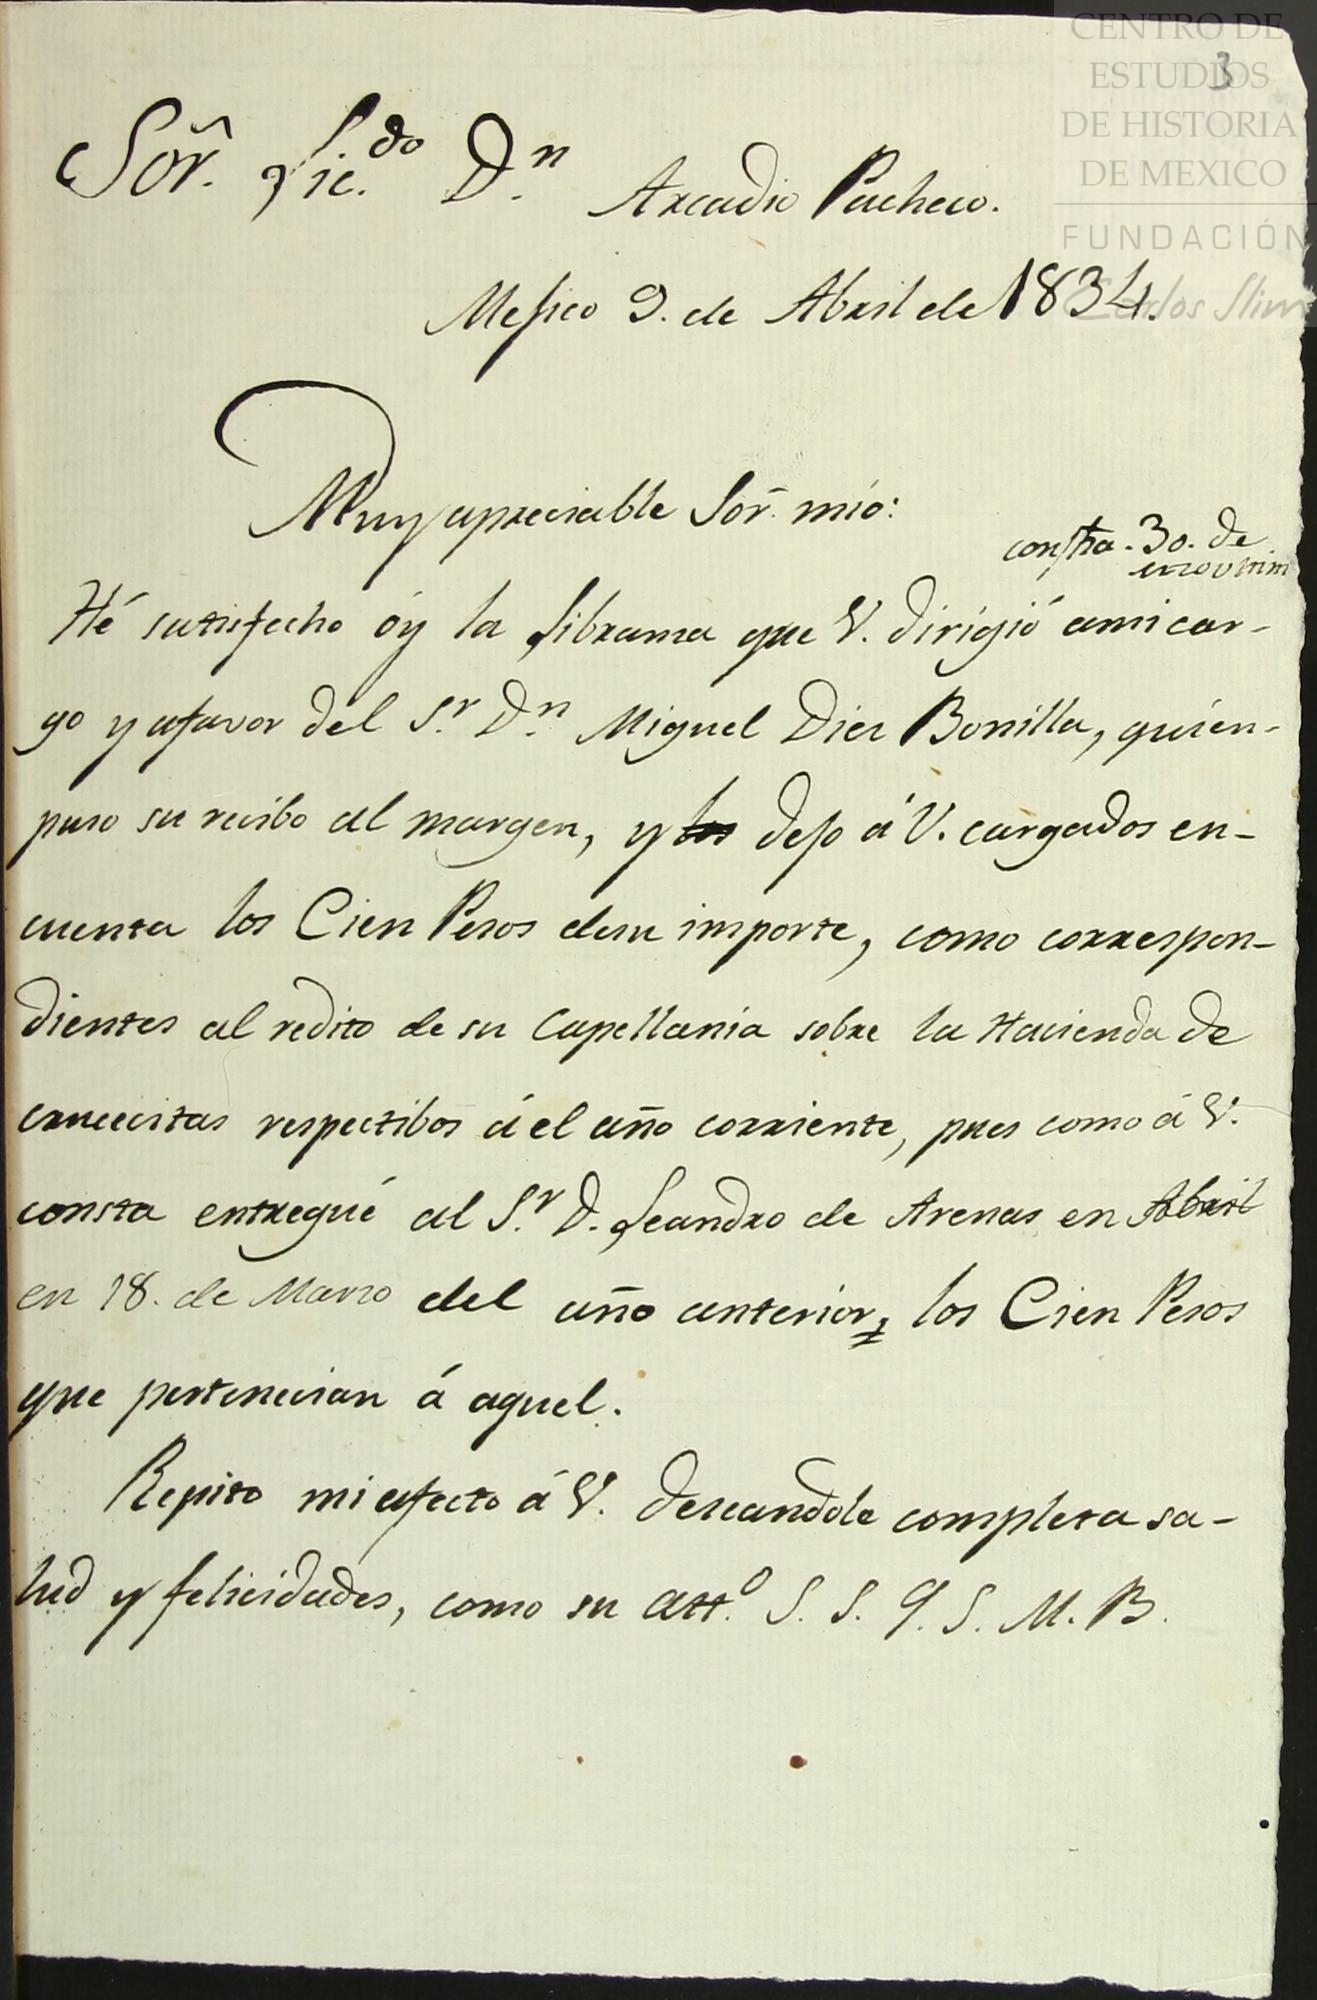 CENTRO DE
ESTUDIOS
DE HISTORIA
DE MEXICO
FUNDACIÓN
Carlos Slim
3
Soȓ. Lic.do D.n Arcadio Pacheco.
Mejico 9. de Abril de 1834.
Muy apreciable Soȓ. mió:
con fha. 30. de
enero ultim
Hé satisfecho óy la libranza que V. dirigió ami car-
go y afavor del S.r D.n Miguel Diez Bonilla, quien-
puso su recibo al margen, y los dejo á V. cargados en-
cuenta los Cien Pesos desu importe, como correspon-
dientes al redito de su Capellania sobre la Hacienda de
crucecitas respectibos á el año corriente, pues como á V.
consta entregué al S.r D. Leandro de Arenas en Abril
en 18. de Marzo del año anterior, los Cien Pesos
que pertenecian á aquel.
Repito mi afecto á V. deseandole completa sa-
lud y felicidades, como su att.o S. S. Q. S. M. B.